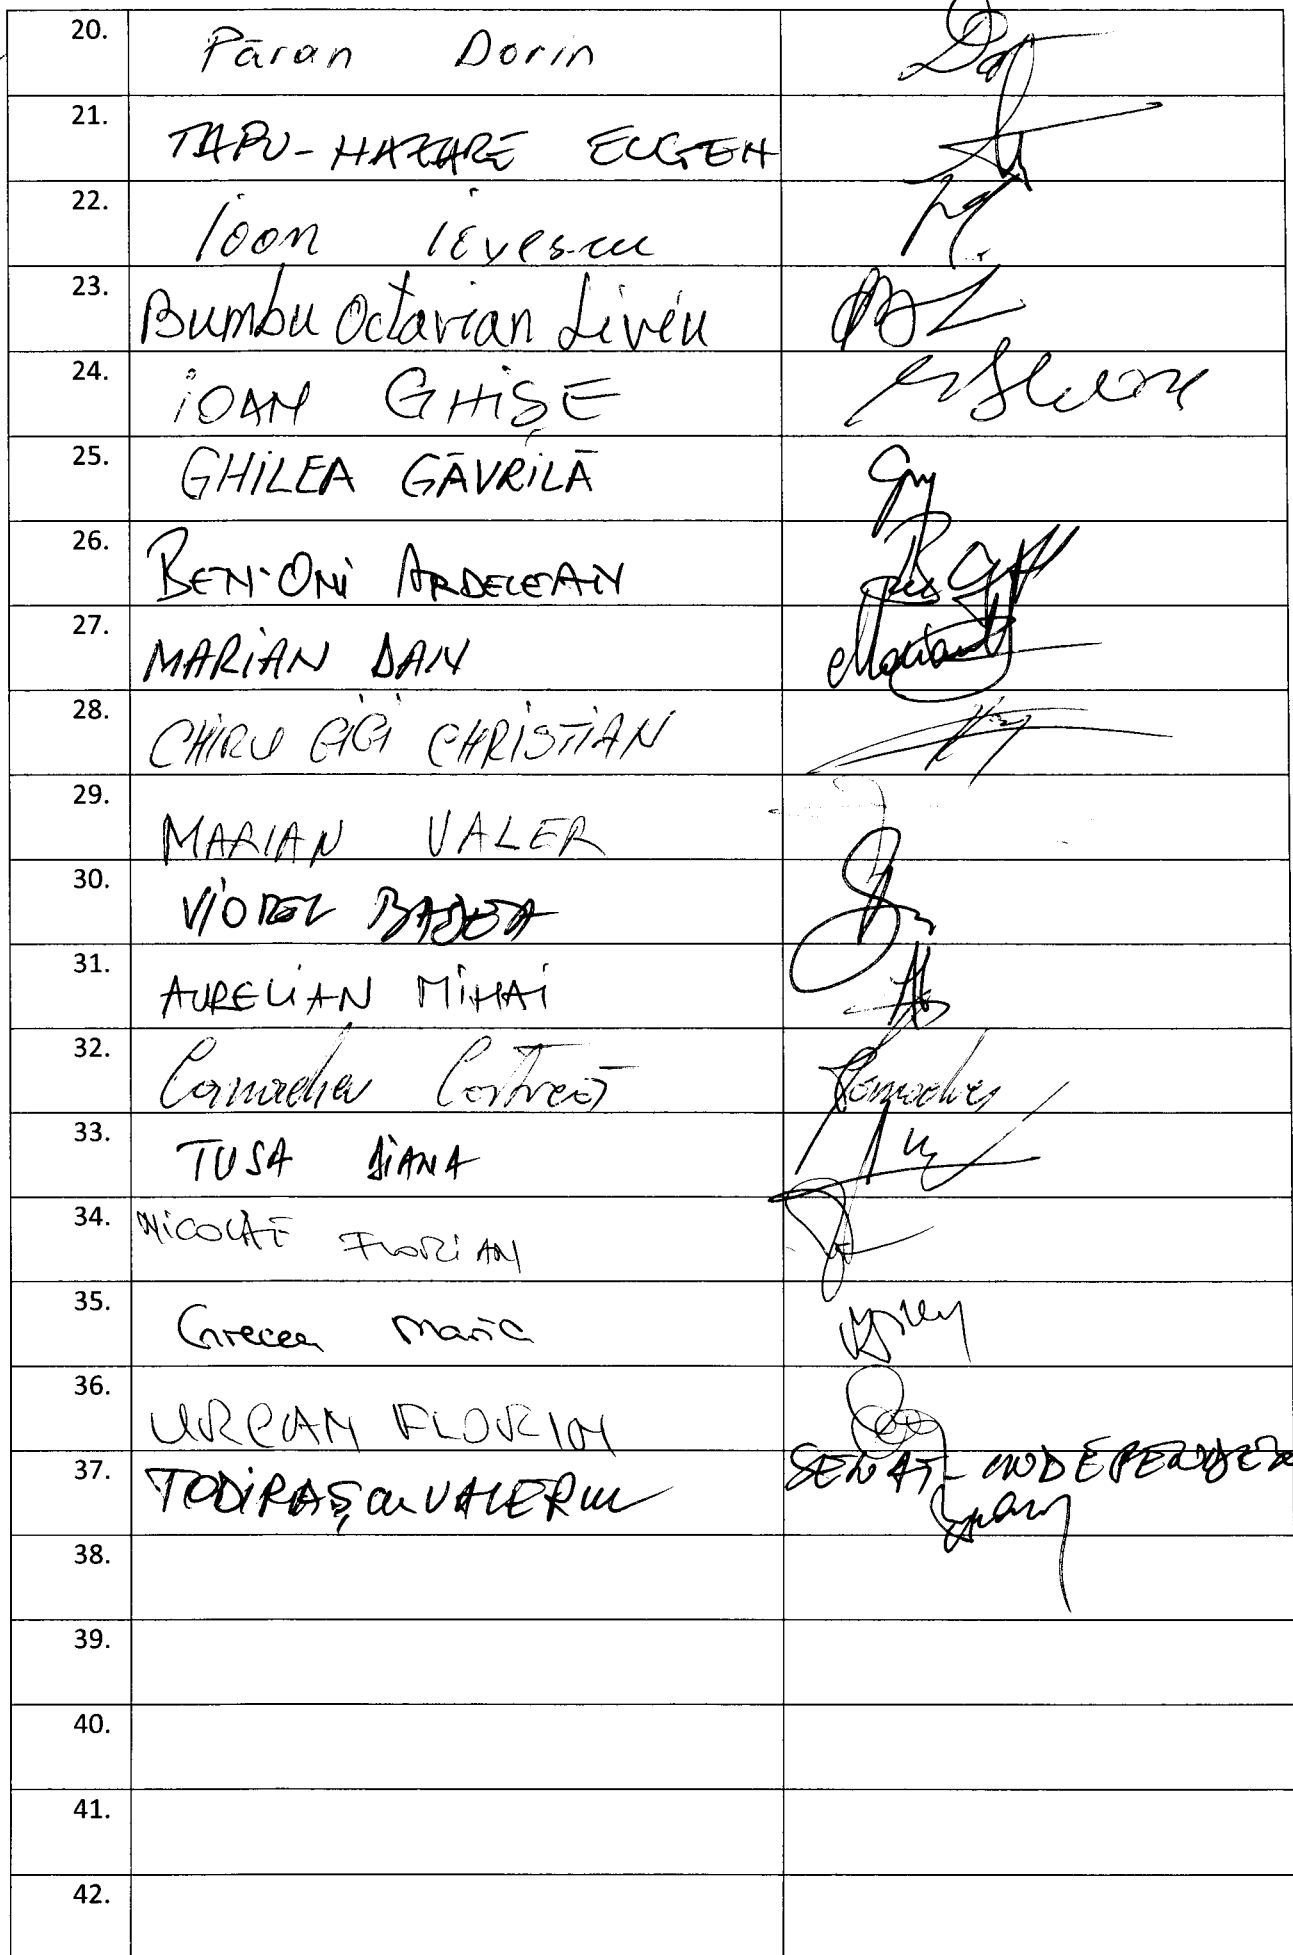 20. Păran Dorin
21. TAPU-NAZARE EUGEN
22. Ioan
23. Bumbu Octavian Liviu
24. IOAN GHIȘE
25. GHILEA GĂVRILĂ
26. BEN-ONI ARDELEAN
27. MARIAN DAN Marian
28. CHIRU GIGI CHRISTIAN
29. MARIAN VALER
30. VIOREL BADEA
31. AURELIAN MIHAI
32.
33. TUSA DIANA
34. NICOLAE FLORIAN
35. Grecea Maria
36. URCAN FLORIN
37. TODIRAȘCU VALERIU SENAT- INDEPENDEN
38.
39.
40.
41.
42.